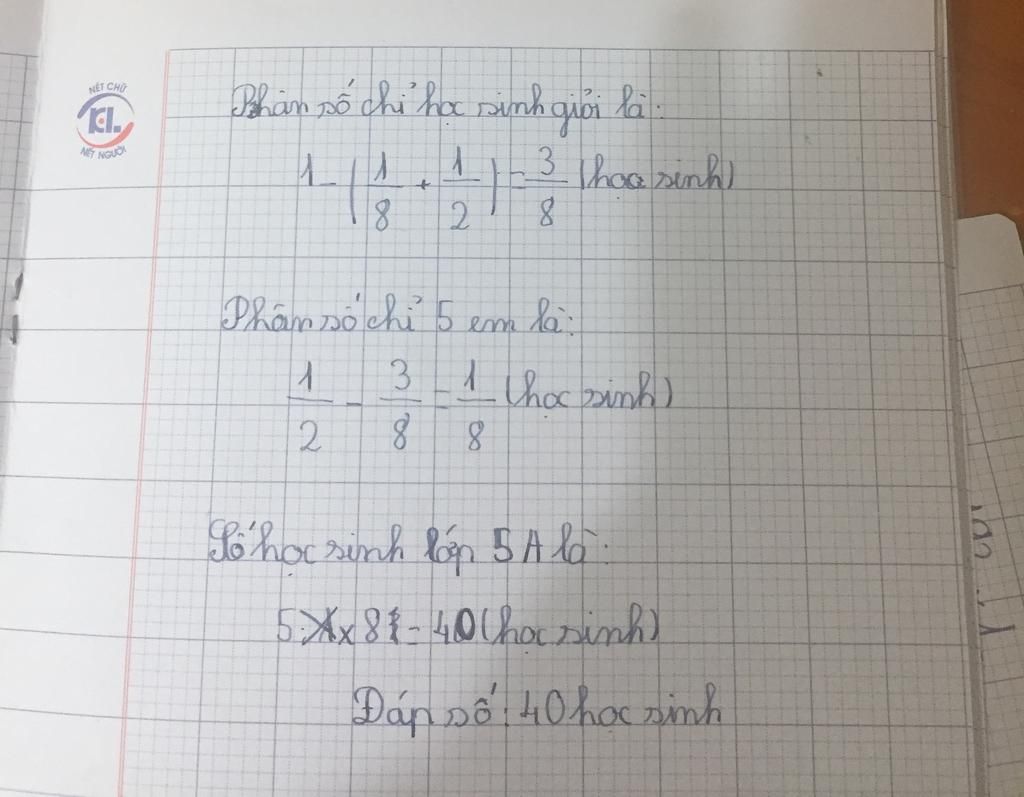 NÉT CHỮ
KL
NẾT NGƯỜI
Phân số chỉ học sinh giỏi là:
1 - (1/8 + 1/2) = 3/8 (học sinh)
Phân số chỉ 5 em là:
1/2 - 3/8 = 1/8 (học sinh)
Số học sinh lớp 5A là:
5 x 8 = 40 (học sinh)
Đáp số: 40 học sinh